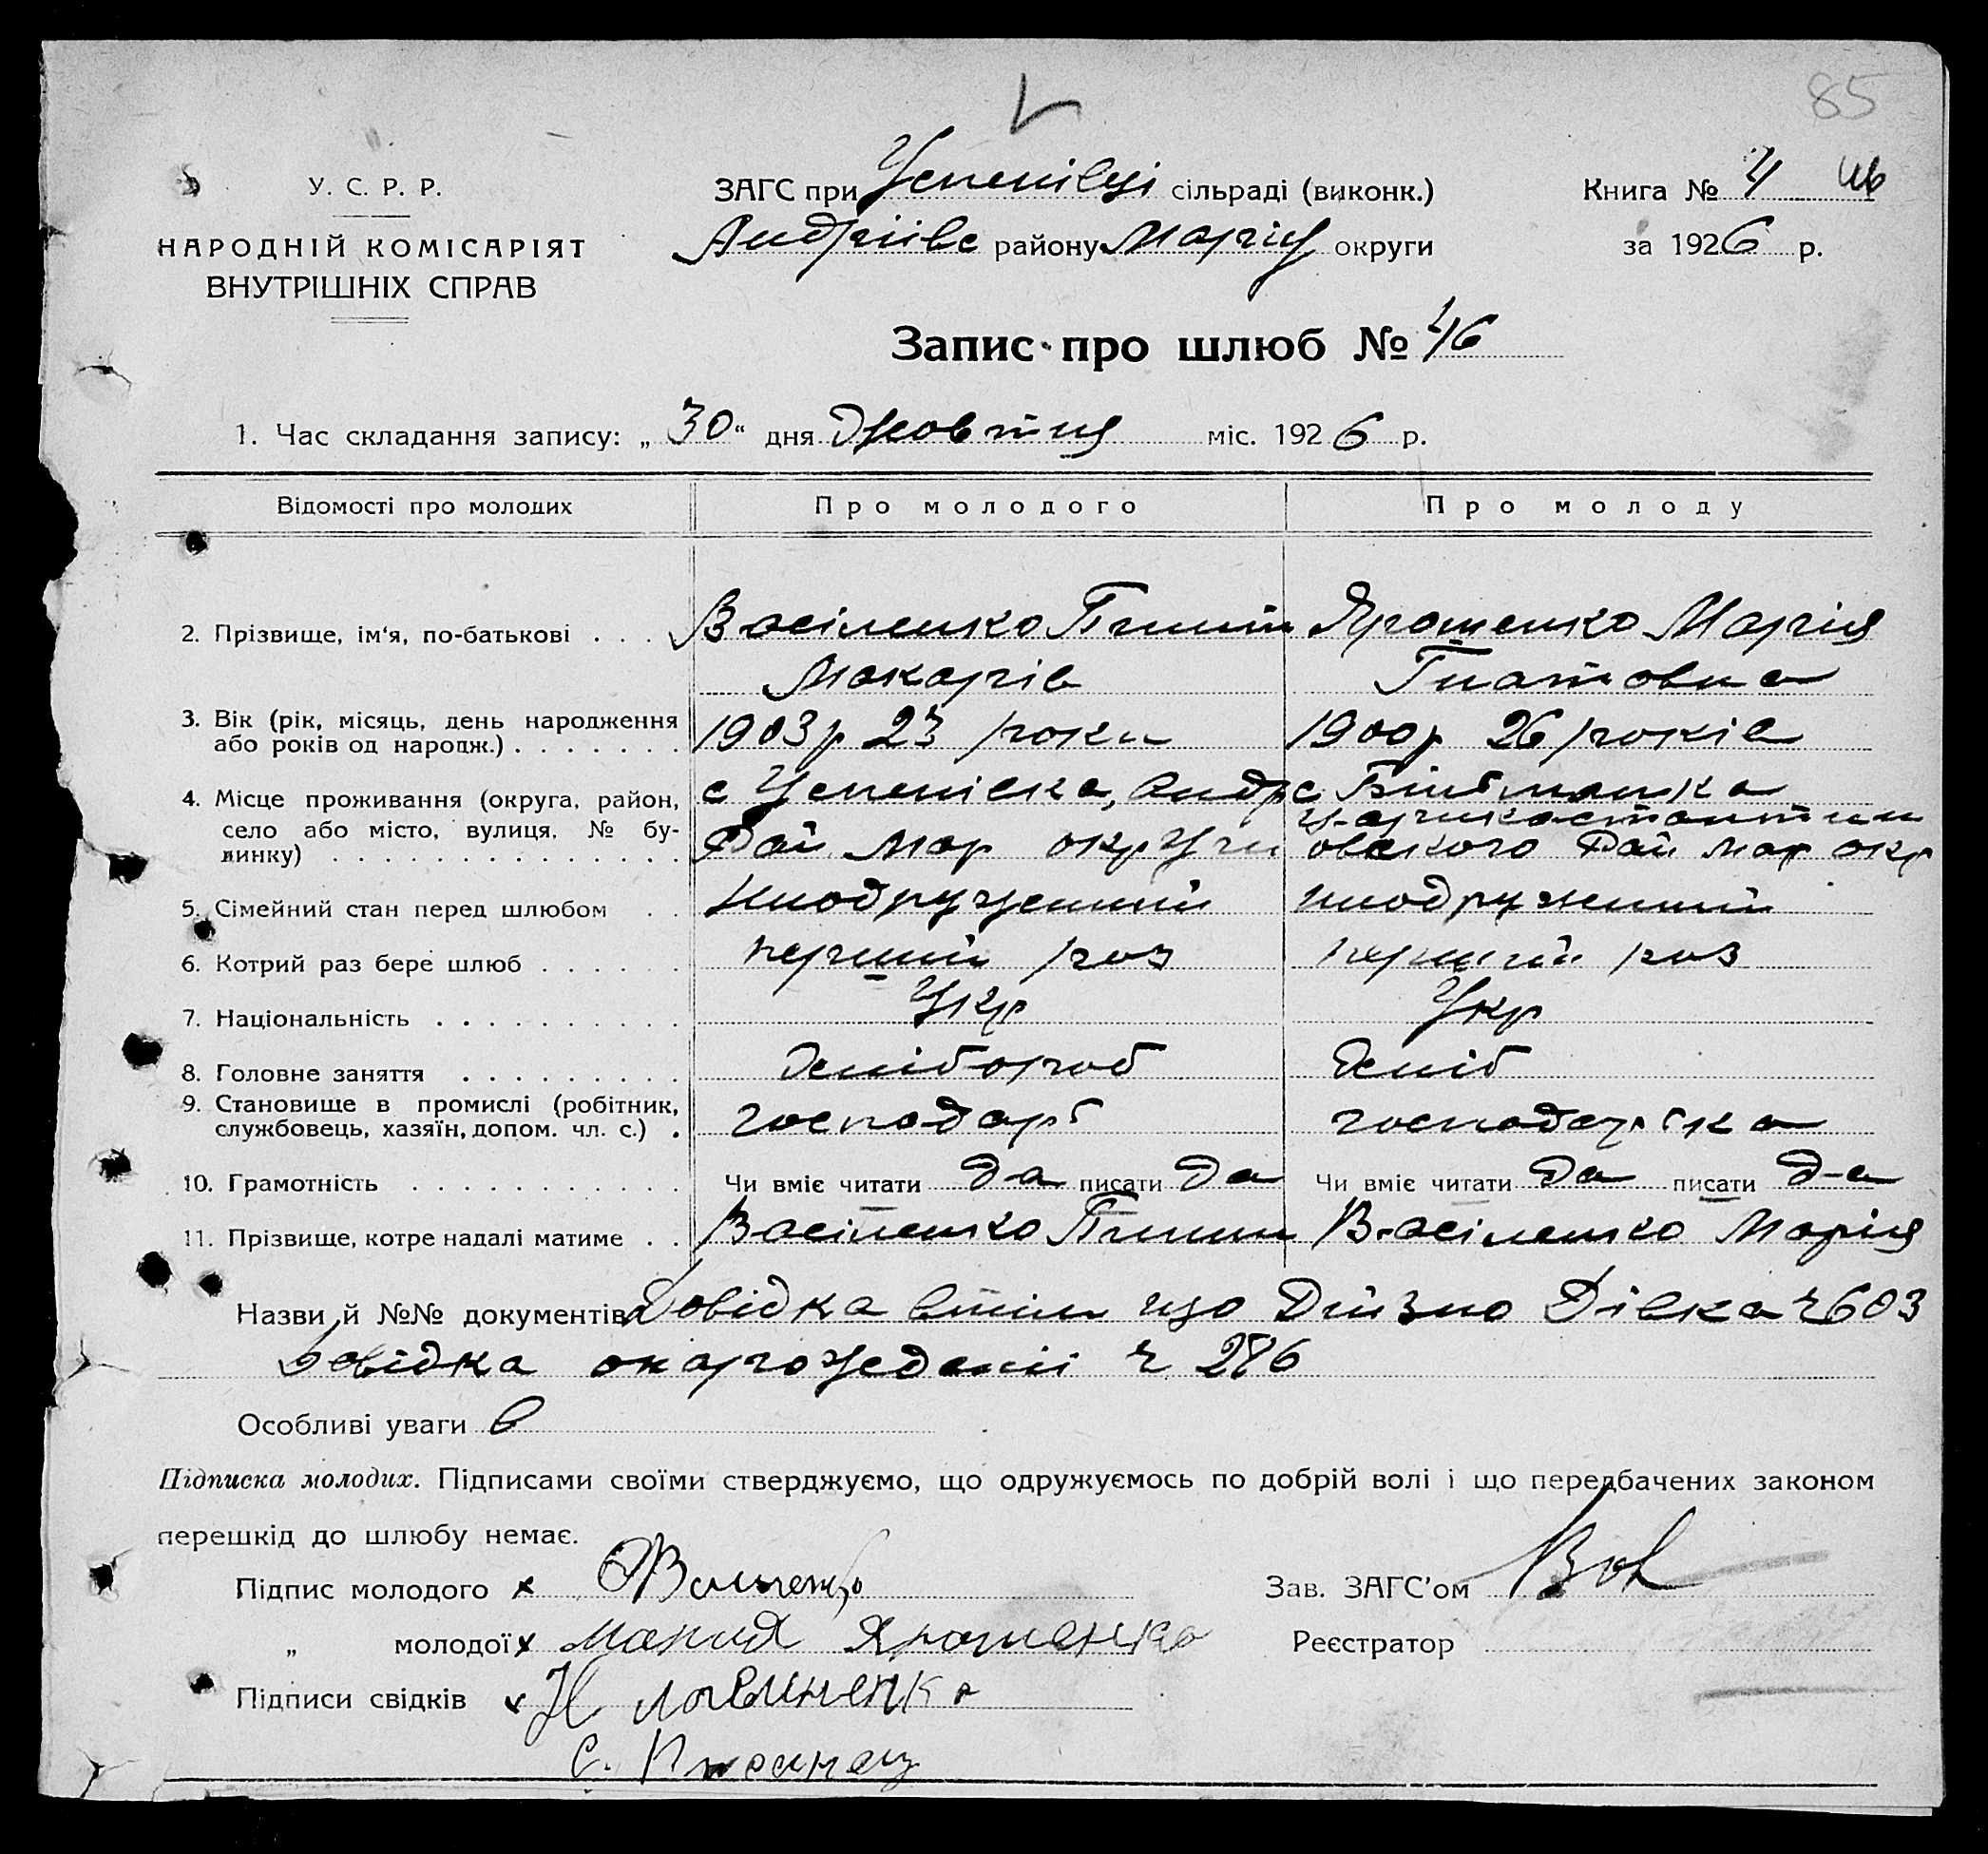 85
У. С. Р. Р.
НАРОДНІЙ КОМІСАРІЯТ
ВНУТРІШНІХ СПРАВ
ЗАГС при Успенівці сільраді (виконк.)
Андріівс району Маріу округи
Книга № 4
за 1926 р.
Запис про шлюб № 46
1. Час складання запису: „30“ дня Жовтня міс. 1926 р.
Відомості про молодих Про молодого Про молоду
2. Прізвище, ім‘я, по-батькові . . . Васіленко Ярошенко Марія
Макарів Гнатовна
3. Вік (рік, місяць, день народження
або років од народж.) . . . . . . . 1903р 23 роки 1900р 26 років
4. Місце проживання (округа, район,
село або місто, вулиця, № бу-
динку) . . . . . . . . . . . . . . .
с Успенівка, Андр с
Рай Мар округи овского Рай мар окр
5. Сімейний стан перед шлюбом . . неодружений неодружений
6. Котрий раз бере шлюб . . . . . . перший раз перший раз
7. Національність . . . . . . . . . . Укр Укр
8. Головне заняття . . . . . . . . . хліб
9. Становище в промислі (робітник,
службовець, хазяїн, допом. чл. с.) . господарь господарька
10. Грамотність . . . . . . . . . . . Чи вміє читати да писати да Чи вміє читати да писати да
11. Прізвище, котре надалі матиме . . Васіленко Васіленко Марія
Назви й №№ документів Довідка втім що дійзно Дівка ч 603
Довідка онарождении ч 286
Особливі уваги
Підписка молодих. Підписами своїми стверджуємо, що одружуємось по добрій волі і що передбачених законом
перешкід до шлюбу немає.
Підпис молодого
Зав. ЗАГС’ом
„ молодої Мария Ярошенко
Реєстратор
Підписи свідків
С.